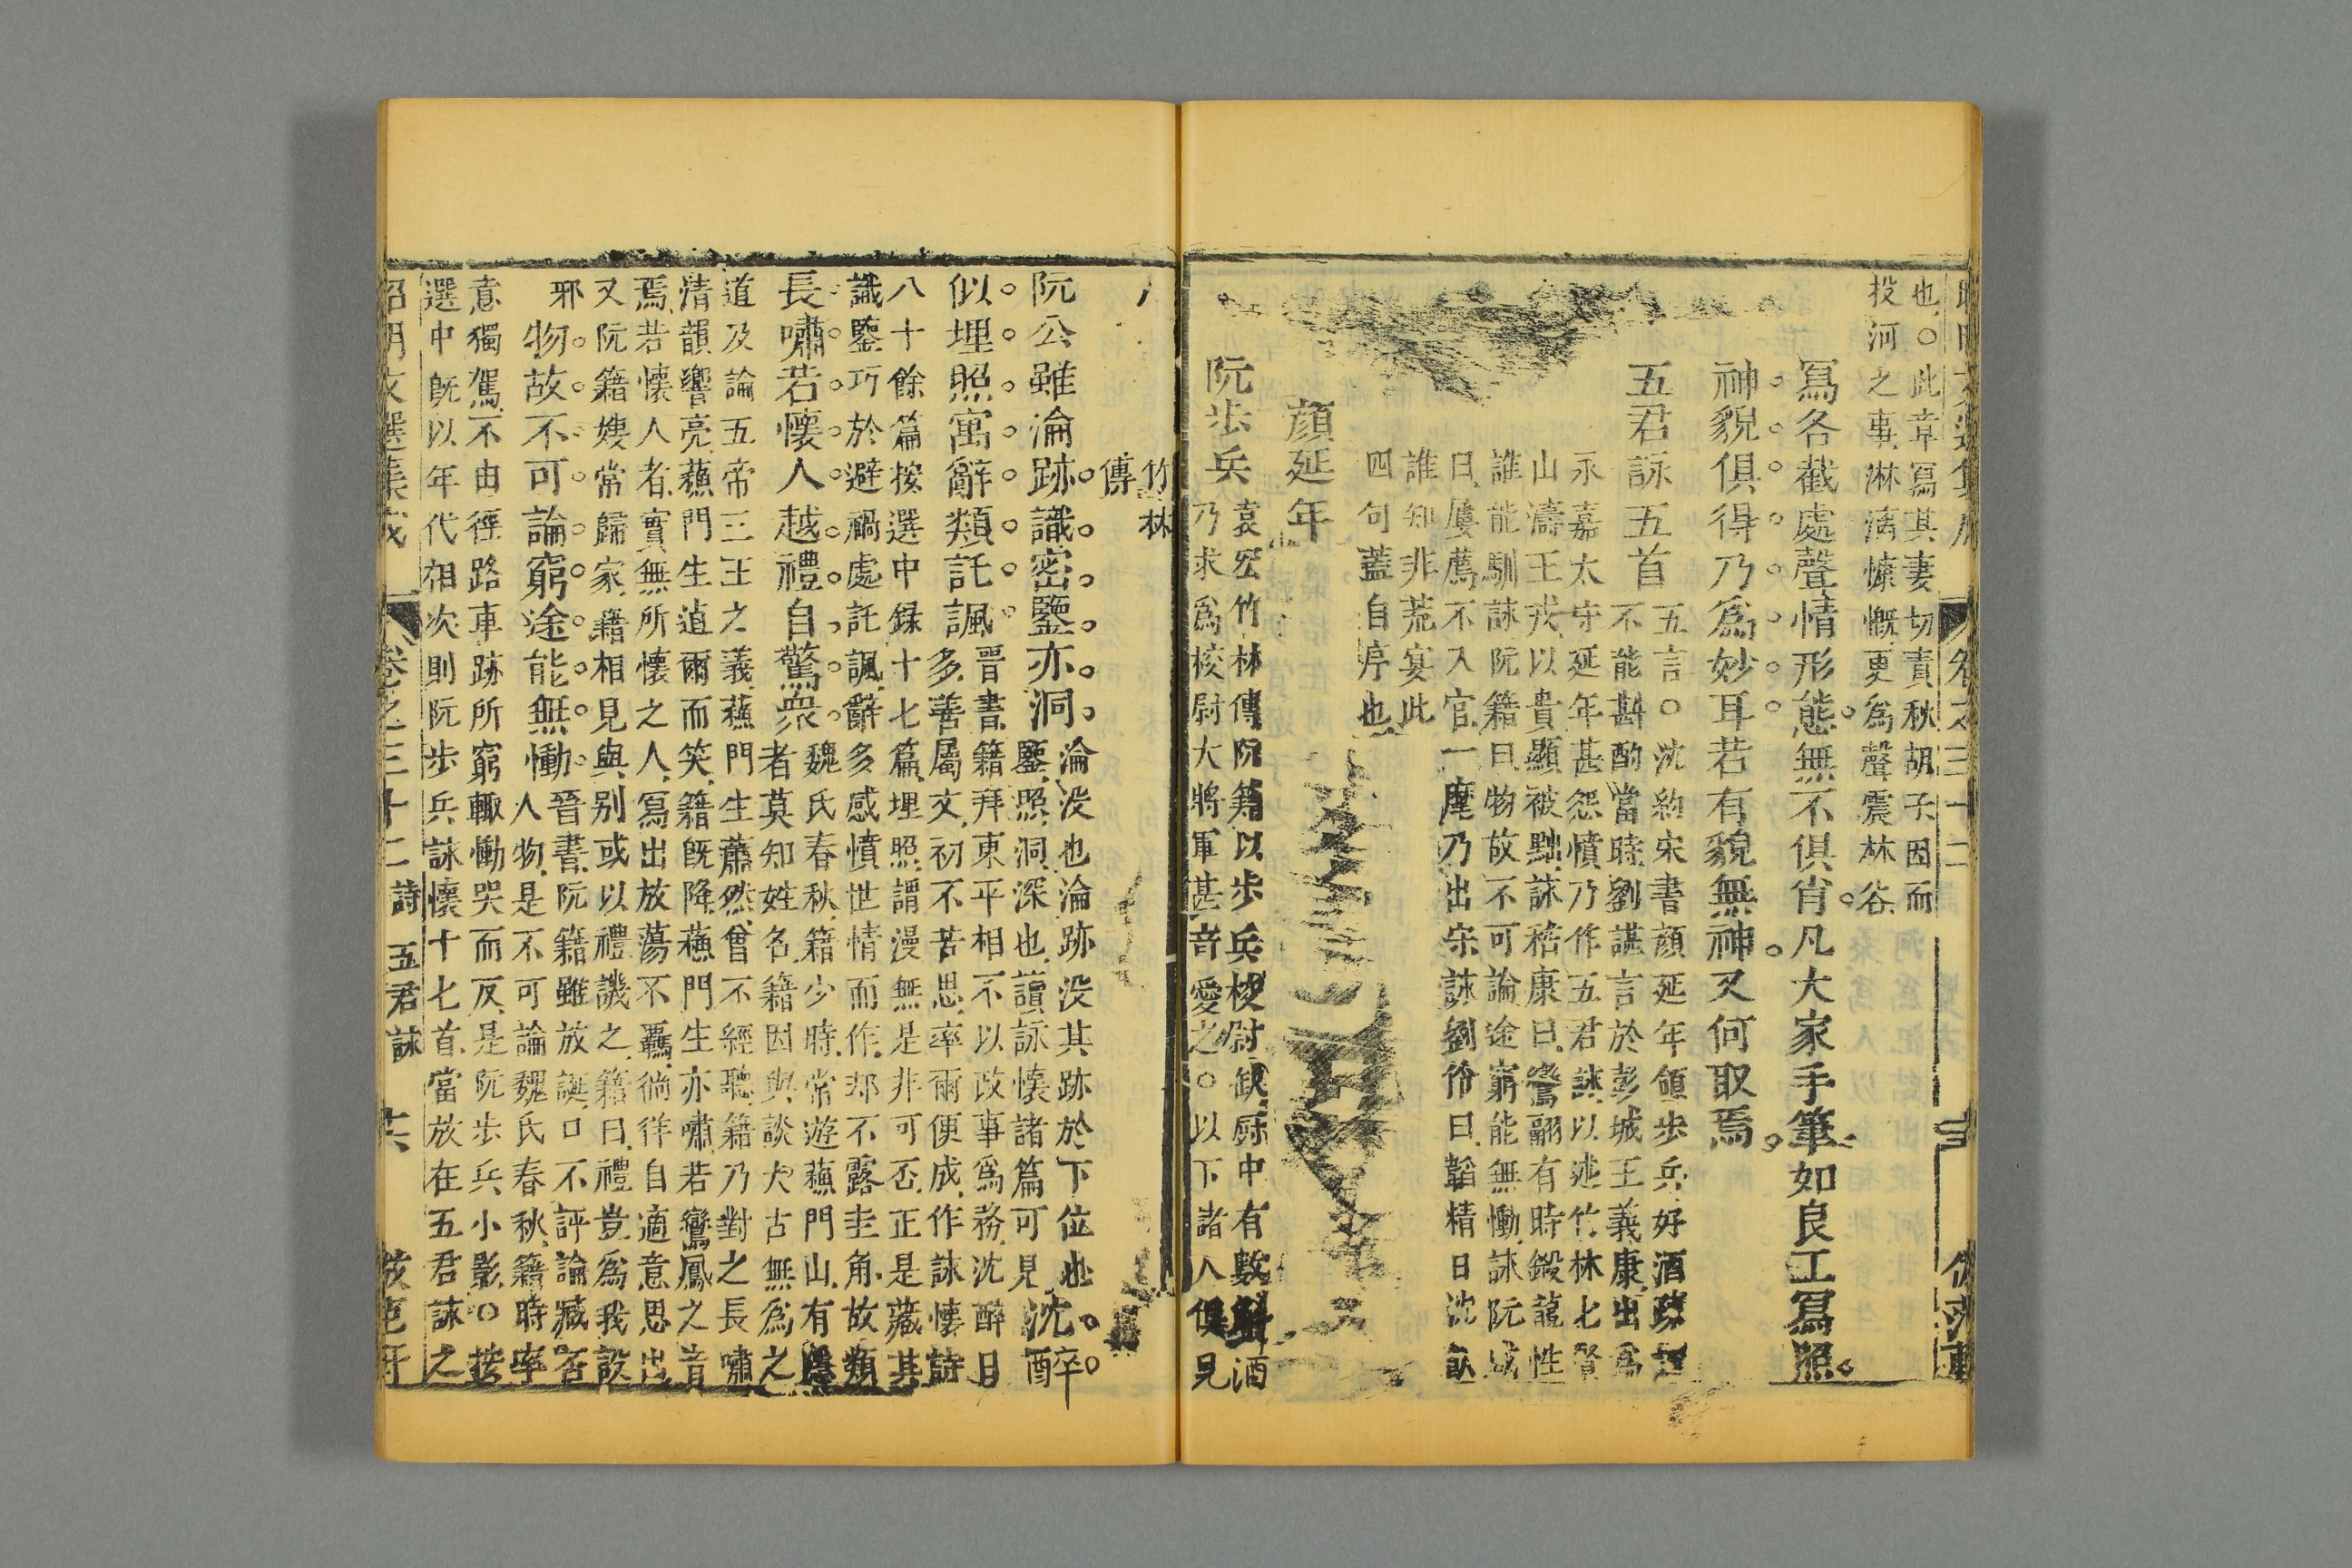 也○此章寫其妻切責秋胡子因而
投河之事淋漓慷慨更爲聲震林谷
寫各截處聲情形態無不俱肖凡大家手筆如良工寫照
神貌俱得乃爲妙耳若有貌無神又何取焉
五君詠五首
五言○沈約宋書顏延年領步兵好酒疎
不能斟酌當時劉諶言於彭城王義康出爲
永嘉太守延年甚怨憤乃作五君詠以述竹林七賢
山濤王戎以貴顯被黜詠嵇康曰鸞翮有時鎩龍性
誰能馴詠阮籍曰物故不可論途窮能無慟詠阮咸
曰屢薦不入官一麾乃出守詠劉伶曰韜精日沈飲
誰知非荒宴此
四句蓋自序也
顏延年
阮步兵
袁宏竹林傳阮籍以步兵校尉缺厨中有數斛酒
乃求爲校尉大將軍甚奇愛之○以下諸人俱見
竹林
傳
阮公雖淪跡識密鑒亦洞
淪没也淪跡没其跡於下位也
鑒照洞深也讀詠懷諸篇可見
沈醉
似埋照寓辭類託諷
晋書籍拜東平相不以政事爲務沈醉日
多善屬文初不苦思率爾便成作詠懷詩
八十餘篇按選中録十七篇埋照謂漫無是非可否正是藏其
識鑒巧於避禍處託諷辭多感憤世情而作却不露圭角故類
長嘯若懷人越禮自驚衆
魏氏春秋籍少時常遊蘇門山有隱
者莫知姓名籍因與談太古無爲之
道及論五帝三王之義蘇門生蕭然曾不經聽籍乃對之長嘯
清韻響亮蘇門生逌爾而笑籍既降蘇門生亦嘯若鸞鳳之音
焉若懷人者實無所懷之人寫出放蕩不羈徜徉自適意思出
又阮籍嫂常歸家籍相見與別或以禮譏之籍曰禮豈爲我設
邪
物故不可論窮途能無慟
晉書阮籍雖放誕口不評論臧否
人物是不可論魏氏春秋籍時率
意獨駕不由徑路車跡所窮輒慟哭而反是阮步兵小影○按
選中既以年代相次則阮步兵詠懷十七首當放在五君詠之
昭明文選集成 卷之三十二 詩 五君詠 十六